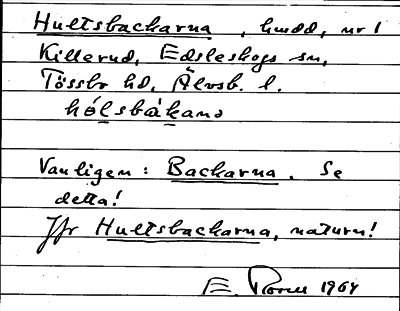 Hultsbackarna, hmdd, nr 1
Killerud, Edsleskogs sn,
Tössbo hd, Älvsb. l.
hólsbàkanɔ
Vanligen: Backarna. Se
detta!
Jfr Hultsbackarna, naturn!
E. 1964